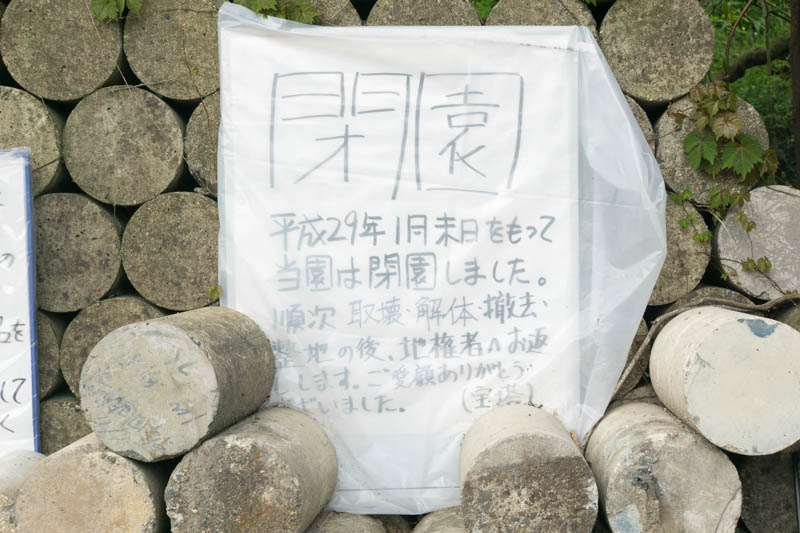 閉園
平成29年1月末日をもって
当園は閉園しました。
順次 取壊・解体・撤去、
整地の後、地権者へお返
します。ご愛顧ありがとう
ございました。(宝塔)
の
を
して
く